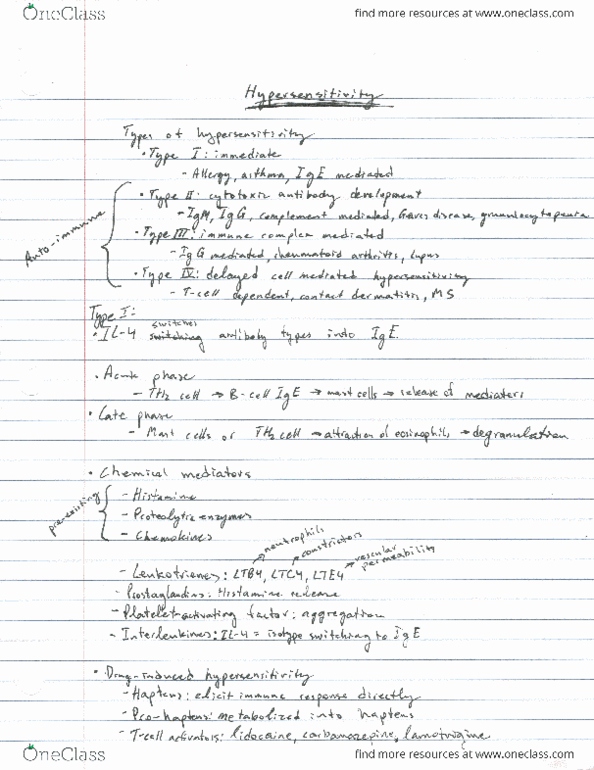 OneClass
find more resources at www.oneclass.com
Hypersensitivity
Types of hypersensitivity
• Type I: immediate
- Allergy, asthma, IgE mediated
• Type II: cytotoxic antibody development
- IgM, IgG, complement mediated, Graves disease, granulocytopenia
• Type III: immune complex mediated
- IgG mediated, rheumatoid arthritis, lupus
• Type IV: delayed cell mediated hypersensitivity
- T-cell dependent, contact dermatitis, MS
Auto-immune
Type I:
switches
• IL-4 switching antibody types into IgE.
• Acute phase
- TH2 cell → B-cell IgE → mast cells → release of mediators
• Late phase
- Mast cells or TH2 cell → attraction of eosinophils → degranulation
• Chemical mediators
pre-existing
- Histamine
- Proteolytic enzymes
- Chemokines
neutrophils
constrictors
vascular permeability
- Leukotrienes: LTB4, LTC4, LTE4
- Prostaglandins: Histamine release
- Platelet-activating factor: aggregation
- Interleukines: IL-4 = isotype switching to IgE
• Drug-induced hypersensitivity
- Haptens: elicit immune response directly
- Pro-haptens: metabolized into haptens
- T-cell activators: lidocaine, carbamazepine, lamotrigine
OneClass
find more resources at www.oneclass.com